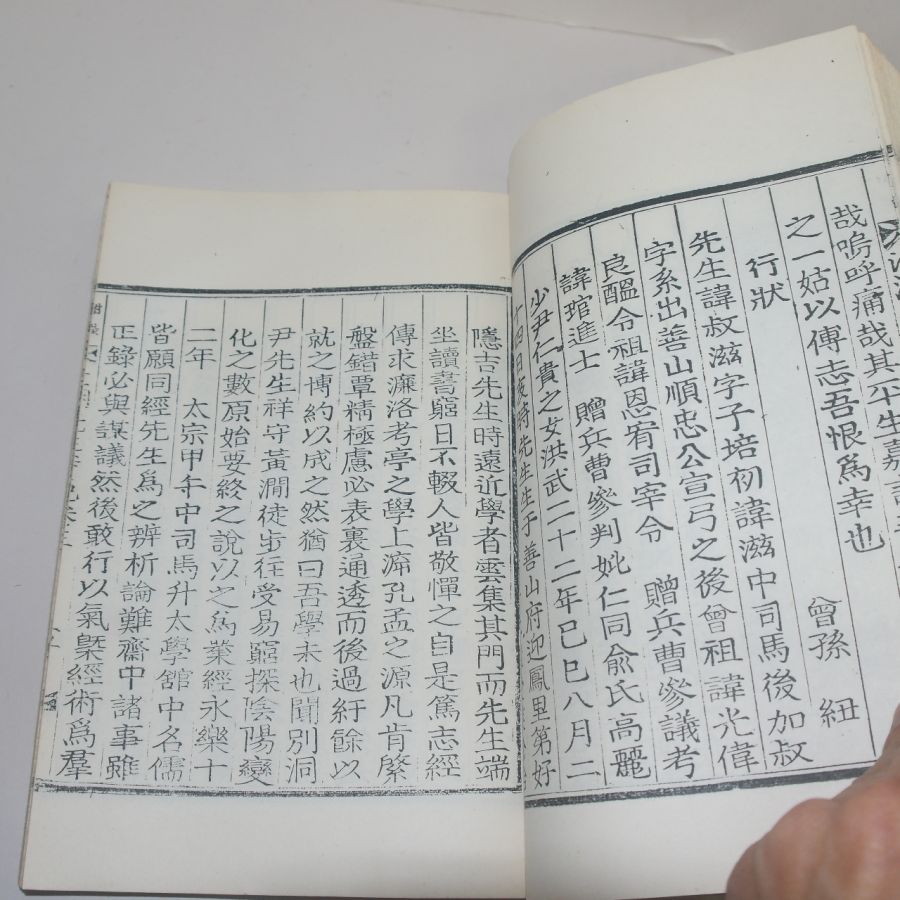 哉嗚呼痛哉其平生嘉
之一姑以傳志吾恨爲幸也
行狀 曾孫 紐
先生諱叔滋字子培初諱滋中司馬後加叔
字系出善山順忠公宣弓之後曾祖諱光偉
良醞令祖諱恩宥司宰令 贈兵曹參議考
諱琯進士 贈兵曹參判妣仁同俞氏高麗
少尹仁貴之女洪武二十二年己巳八月二
十四日亥時先生生于善山府迎鳳里第好
隱吉先生時遠近學者雲集其門而先生端
坐讀書窮日不輟人皆敬憚之自是篤志經
傳求濂洛考亭之學上泝孔孟之源凡肯綮
盤錯覃精極慮必表裏通透而後過紆餘以
就之博約以成之然猶曰吾學未也聞別洞
尹先生祥守黃澗徒步往受易窮探陰陽變
化之數原始要終之說以之爲業經永樂十
二年 太宗甲午中司馬升太學舘中名儒
皆願同經先生爲之辨析論難齋中諸事雖
正錄必與謀議然後敢行以氣槩經術爲羣